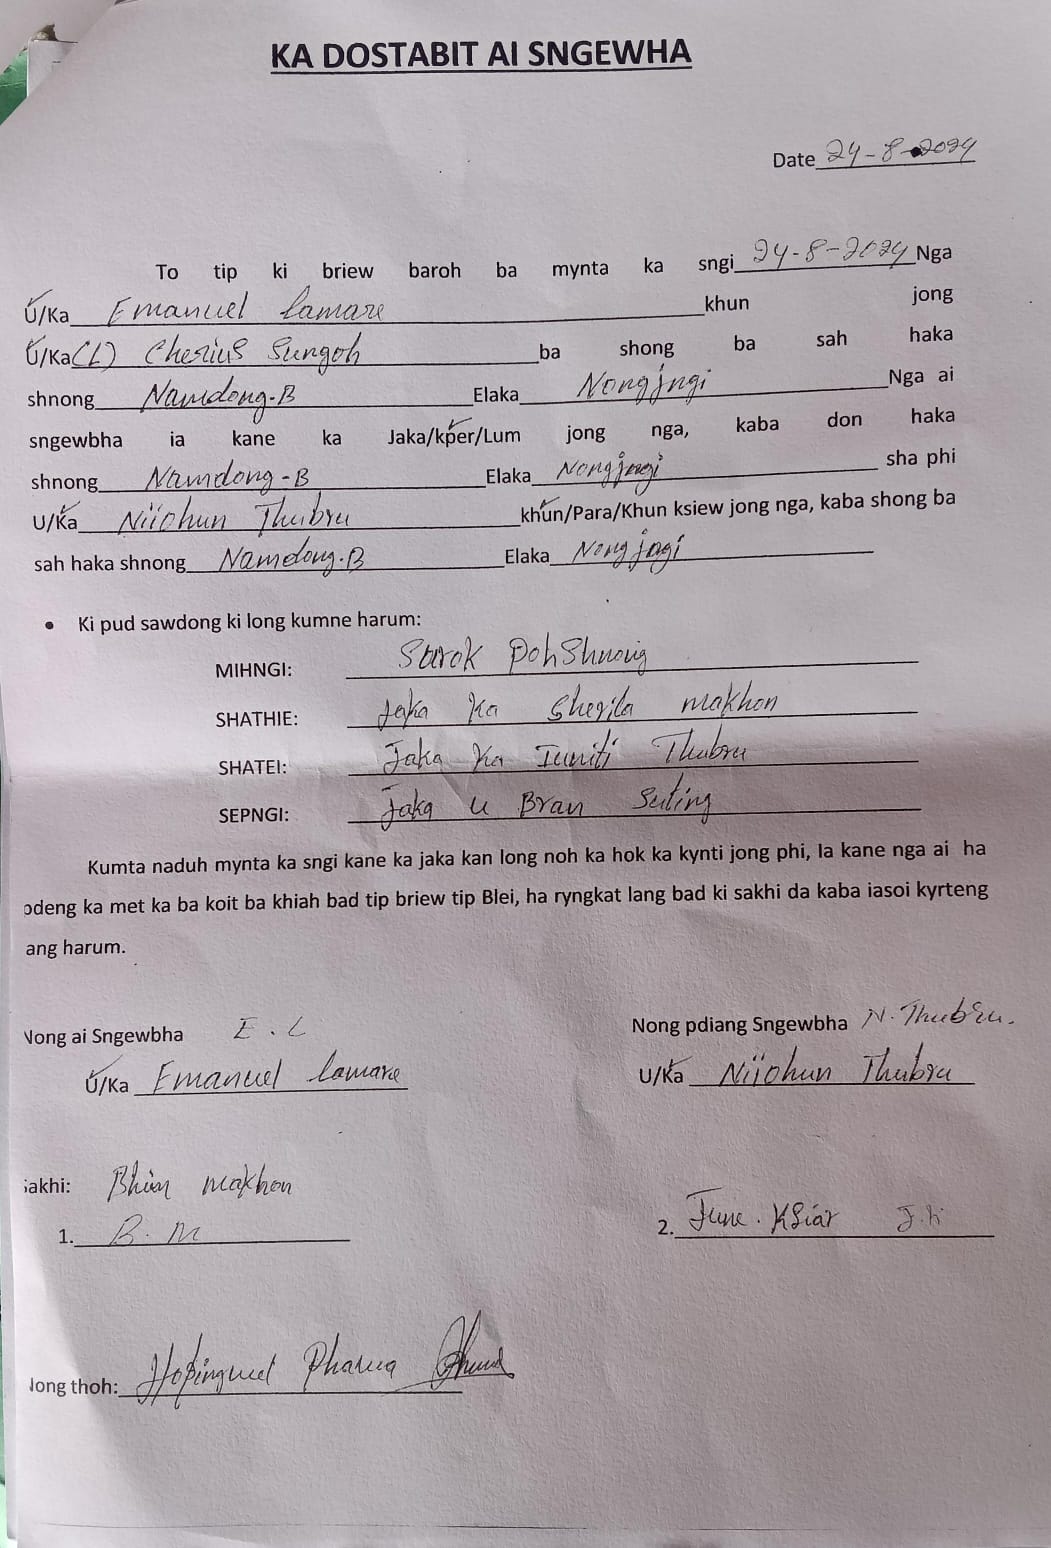 KA DOSTABIT AI SNGEWHA
Date 24-8-2024
To tip ki briew baroh ba mynta ka sngi 24-8-2024 Nga
U/Ka Emanuel Lamare khun jong
U/Ka (L) Cherius Sungoh ba shong ba sah haka
shnong Namdong-B Elaka Nongjngi Nga ai
sngewbha ia kane ka Jaka/kper/Lum jong nga, kaba don haka
shnong Namdong-B Elaka Nongjngi sha phi
U/Ka Niiohun Thubru khun/Para/Khun ksiew jong nga, kaba shong ba
sah haka shnong Namdong.B Elaka Nongjngi
• Ki pud sawdong ki long kumne harum:
MIHNGI: Surok PohShnong
SHATHIE: Jaka Ka Shegila makhon
SHATEI: Jaka Ka Iuniti Thubru
SEPNGI: Jaka u Bran Suting
Kumta naduh mynta ka sngi kane ka jaka kan long noh ka hok ka kynti jong phi, la kane nga ai ha
pdeng ka met ka ba koit ba khiah bad tip briew tip Blei, ha ryngkat lang bad ki sakhi da kaba iasoi kyrteng
ang harum.
Nong ai Sngewbha E.L
Nong pdiang Sngewbha N.Thubru.
U/Ka Emanuel Lamare
U/Ka Niiohun Thubru
Sakhi: Bhim makhon
1. B.M
2. June.Ksiar J.k
Nong thoh: Pharua